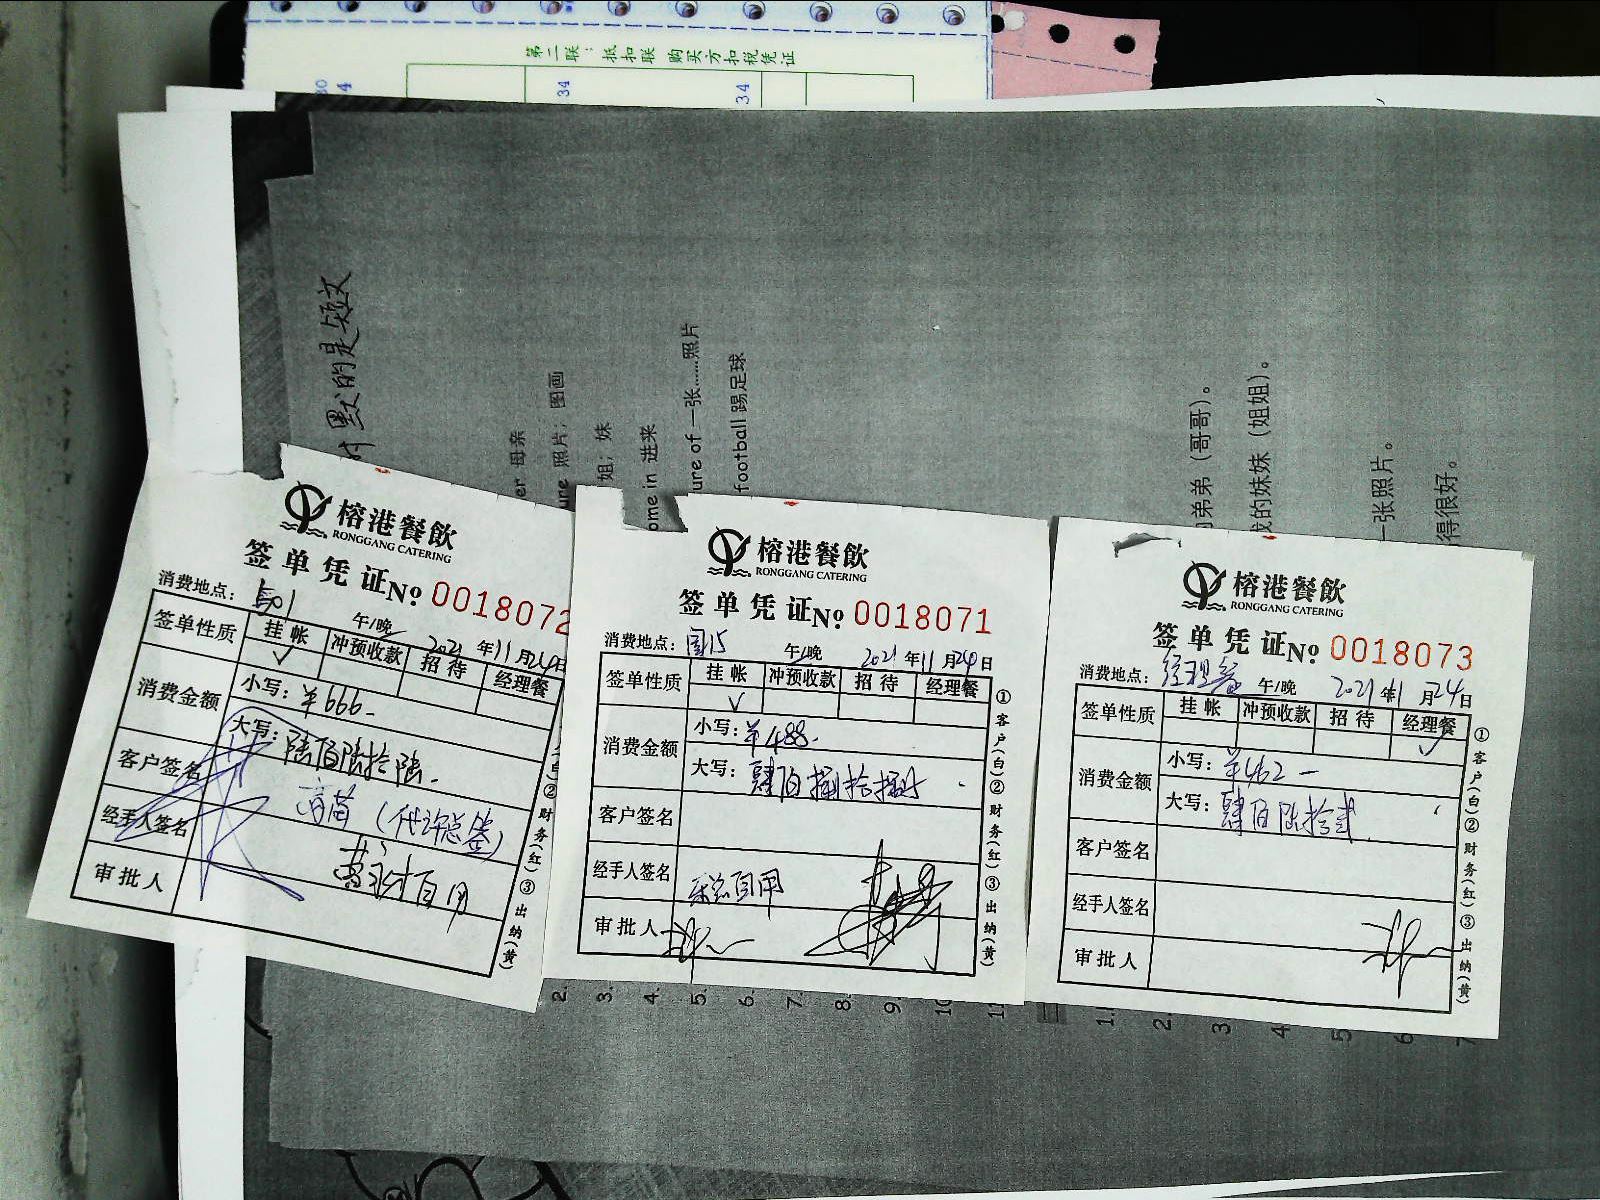 第二联：抵扣联 购买方扣税凭证
34
34
默的是短文
er 母亲
ure 照片；图画
姐；妹
ome in 进来
ure of 一张……照片
football 踢足球
弟弟（哥哥）。
我的妹妹（姐姐）。
一张照片。
得很好。
榕港餐飲
RONGGANG CATERING
签单凭证No. 0018072
消费地点：
午/晚 2021年11月24日
签单性质 挂帐 冲预收款 招待 经理餐
✓
消费金额 小写：¥666-
大写：陆佰陆拾陆-
客户签名 （代许总签）
经手人签名
审批人
②财务(红)③出纳(黄)
榕港餐飲
RONGGANG CATERING
签单凭证No. 0018071
消费地点：国15 午/晚 2021年11月24日
签单性质 挂帐 冲预收款 招待 经理餐
✓
消费金额 小写：¥488-
大写：肆佰捌拾捌
客户签名
经手人签名
审批人
①客户(白)②财务(红)③出纳(黄)
榕港餐飲
RONGGANG CATERING
签单凭证No. 0018073
消费地点：经理餐 午/晚 2021年11月24日
签单性质 挂帐 冲预收款 招待 经理餐
✓
消费金额 小写：¥462-
大写：肆佰陆拾贰
客户签名
经手人签名
审批人
①客户(白)②财务(红)③出纳(黄)
2.
3.
4.
5.
6.
7.
8.
9.
10
11
三
1.
2.
3.
4.
5
6
7